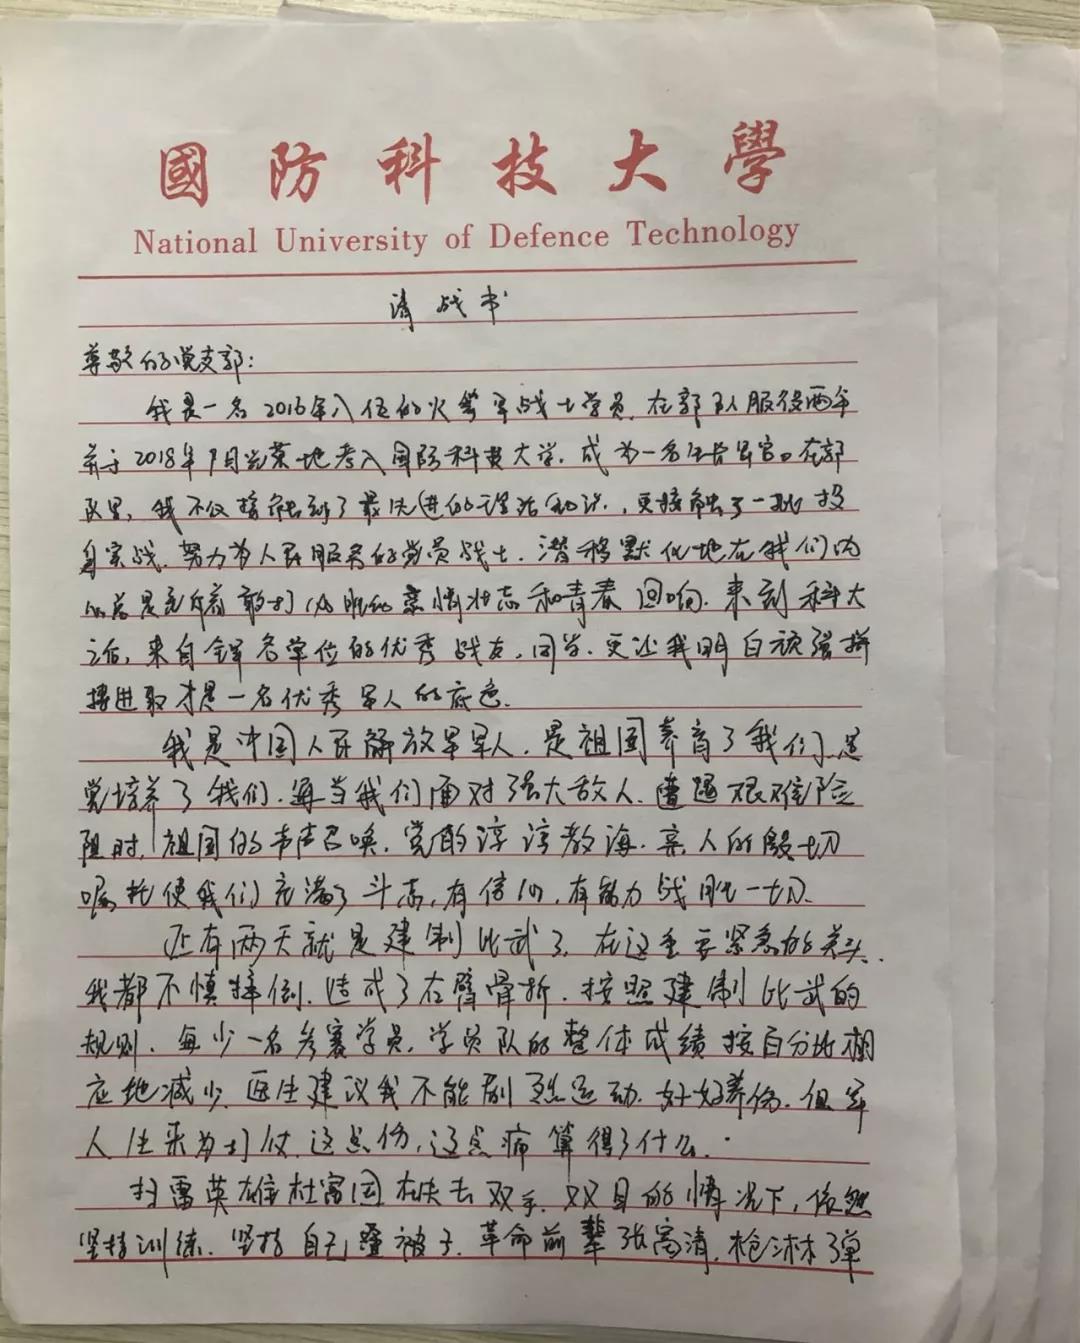 國防科技大學
National University of Defence Technology
请战书
尊敬的党支部：
我是一名2016年入伍的火箭军战士学员，在部队服役两年
并于2018年9月光荣地考入国防科技大学，成为一名生长军官。在部
队里，我不仅接触到了最先进的理论知识，更接触了一批投
身实战、努力为人民服务的党员战士，潜移默化地在我们内
心总是充斥着敢打必胜的豪情壮志和青春回响。来到科大
之后，来自全军各单位的优秀战友、同学，更让我明白顽强拼
搏进取才是一名优秀军人的底色。
我是中国人民解放军军人，是祖国养育了我们，是
党培养了我们，每当我们面对强大敌人，遭遇艰难险
阻时，祖国的声声召唤，党的谆谆教诲，亲人的殷切
嘱托使我们充满了斗志，有信心，有能力战胜一切。
还有两天就是建制比武了，在这重要紧急的关头，
我都不慎摔倒，造成了左臂骨折，按照建制比武的
规则，每少一名参赛学员，学员队的整体成绩按百分比相
应地减少，医生建议我不能剧烈运动，好好养伤。但军
人生来为打仗，这点伤，这点痛算得了什么。
扫雷英雄杜富国在失去双手、双目的情况下，依然
坚持训练，坚持自己叠被子，革命前辈张富清，枪淋弹